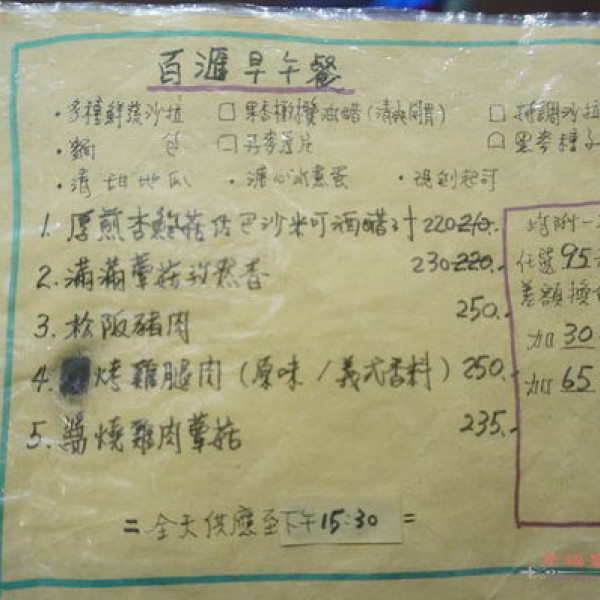 百滙早午餐
・多種鮮蔬沙拉 □ 果香橄欖油醋(清爽開胃) □ 特調沙拉
・麵 包 □ 燕麥厚片 □ 黑麥種子
・清甜地瓜 ・溏心水煮蛋 ・視創起司
1. 厚煎杏鮑菇佐巴沙米可酒醋汁 220 210.
2. 滿滿蕈菇孜然香 230 220.-
3. 松阪豬肉 250.-
4. 烤雞腿肉(原味/義式香料) 250.-
5. 醬燒雞肉蕈菇 235.-
增附一
任選95元
差額換
加30
加65
=全天供應至下午15:30=